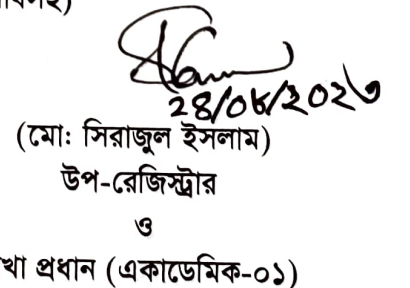 ২৪/০৮/২০২৩
(মো: সিরাজুল ইসলাম)
উপ-রেজিস্ট্রার
ও
খা প্রধান (একাডেমিক-০১)